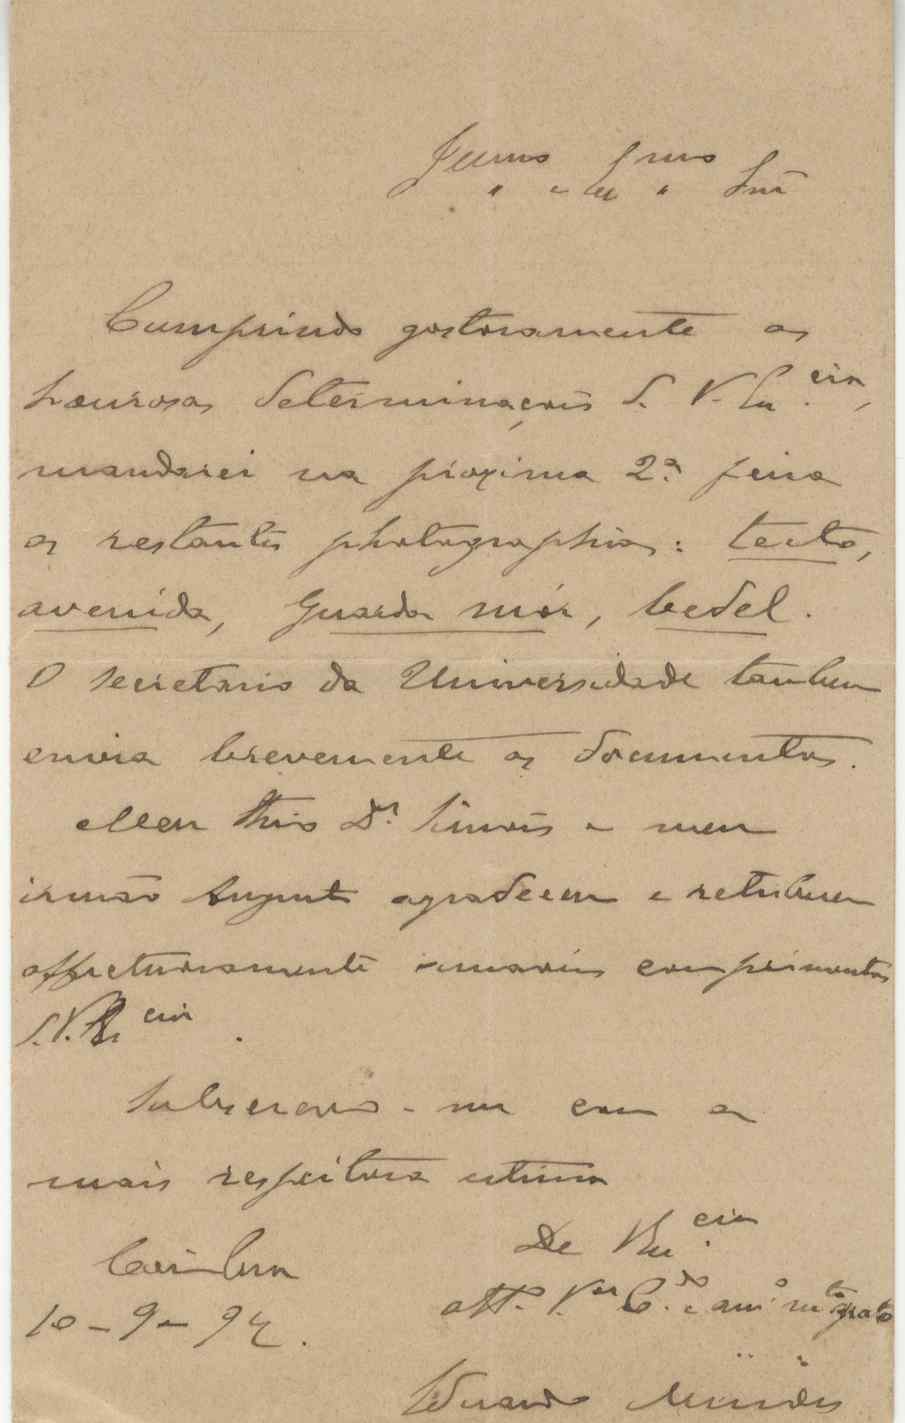 Illmo Exmo Snr
Cumprindo gostosamente as
honrosas determinações d. V. Ex.cia,
mandarei na proxima 2.ª feira
as restantes photographias: tecto,
avenida, Guarda mór, bedel.
O secretario da Universidade tambem
envia brevemente os documentos.
Meu thio Dr. Simões e meu
irmão Augusto agradecem e retribuem
affectuosamente comprimentos
d. V. Ex.cia.
Subscrevo-me com a
mais respeitosa estima
De V. Ex.cia
Coimbra
att.º V.or C.do e am.º m.to grato
10-9-94.
Eduardo Mendes